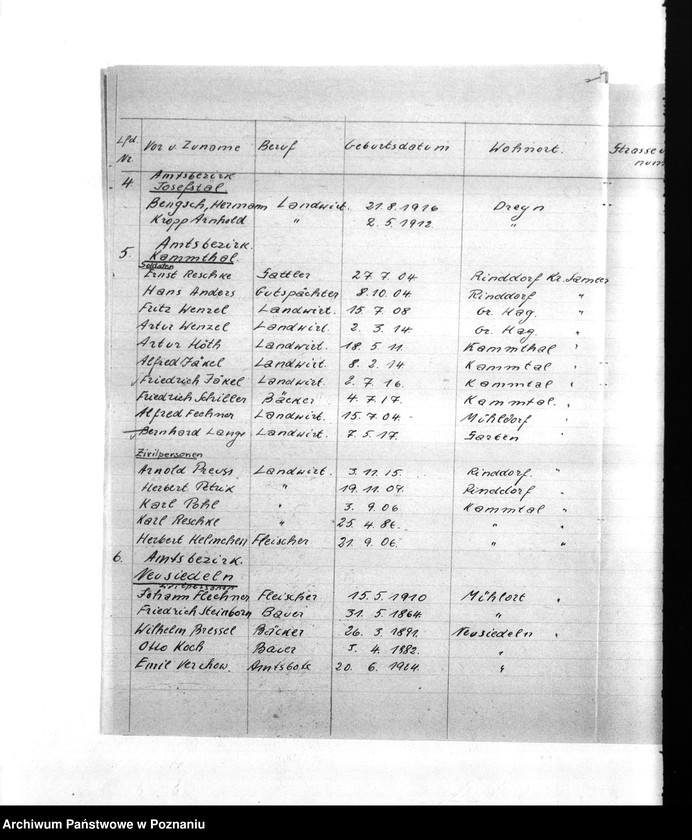 Lfd. Nr. Vor u. Zuname Beruf Geburtsdatum Wohnort. Strasse u num
4. Amtsbezirk
Josefstal.
Bengsch, Hermann Landwirt. 21.8.1916 Dreyn
Kropp Arnhold " 2.5.1912 "
5. Amtsbezirk.
Kammthal.
Soldaten
Ernst Reschke Sattler 27 7.04. Rinddorf Kr. Samter
Hans Anders Gutspächter 8.10.04. Rinddorf "
Fritz Wenzel Landwirt. 15.7 08 Gr. Hag. "
Artur Wenzel Landwirt. 2. 3.14 Gr. Hag. "
Artur Höth Landwirt. 18.5.11. Kammthal "
Alfred Jäkel Landwirt. 8. 2.14 Kammtal "
Friedrich Jäkel Landwirt. 2.7 16. Kammtal "
Friedrich Schiller Bäcker 4.7.17. Kammtal. "
Alfred Fechner Landwirt. 15.7.04. Mühldorf "
Bernhard Lange Landwirt. 7.5.17. Garten "
Zivilpersonen
Arnold Preuss Landwirt. 3.11.15. Rinddorf. "
Herbert Petrik " 19.11.04. Rinddorf "
Karl Pohl " 3. 9.06 Kammtal "
Karl Reschke " 25.4.86. " "
Herbert Helmchen Fleischer 21.9.06. " "
6. Amtsbezirk.
Neusiedeln
Zivilpersonen
Johann Flechner Fleischer 15.5.1910 Mühlort "
Friedrich Steinborn Bauer 31.5.1864. "
Wilhelm Bressel Bäcker 26.3.1891. Neusiedeln "
Otto Koch Bauer 5.4.1882. "
Emil Verchow. Amtsbote 20. 6.1924. "
Archiwum Państwowe w Poznaniu